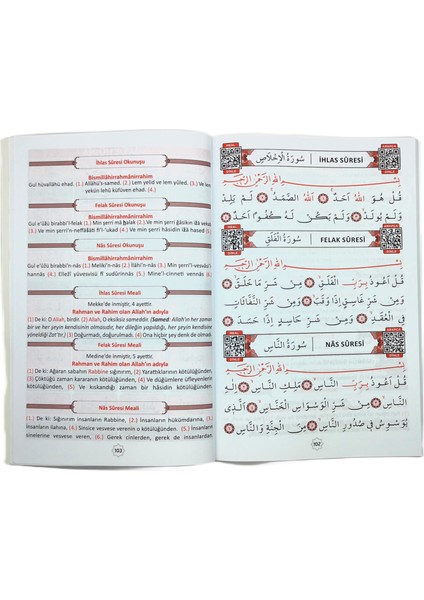 İhlas Sûresi Okunuşu
Bismillâhirrahmânirrahim
Gul hüvallâhü ehad. (1.) Allâhü's-samed. (2.) Lem yelid ve lem yûled. (3.) Ve lem
yekün lehû küfüven ehad. (4.)
Felak Sûresi Okunuşu
Bismillâhirrahmânirrahim
Gul e'ûzü birabbi'l-felak (1.) Min şerri mâ halak (2.) Ve min şerri ğâsikin izâ vekab.
(3.) Ve min şerri'n-neffâsâti fi'l-'ukad (4.) Ve min şerri hâsidin izâ hased (5.)
Nâs Sûresi Okunuşu
Bismillâhirrahmânirrahim
Gul e'ûzü birabbi'n-nâs (1.) Meliki'n-nâs (2.) İlâhi'n-nâs (3.) Min şerri'l-vesvâsi'l-
hannâs (4.) Ellezî yüvesvisü fî sudûrinnâs (5.) Mine'l-cinneti vennâs (6.)
İhlas Sûresi Meali
Mekke'de inmiştir, 4 ayettir.
Rahman ve Rahim olan Allah'ın adıyla
(1) De ki: O Allah, birdir. (2.) Allah, O eksiksiz sameddir. (Samed: Allah'ın her zaman
bir ve her şeyin kendisinin olmasıdır, her dileğin yapıldığı, her şeyin kendisine
yöneldiği Zat'ter.) (3.) Doğurmadı, doğurulmadı. (4.) Ona hiçbir şey denk de olmadı.
Felak Sûresi Meali
Medine'de inmiştir, 5 ayettir.
Rahman ve Rahim olan Allah'ın adıyla
(1.) De ki: Ağaran sabahın Rabbine sığınırım. (2) Yarattıklarının kötülüğünden.
(3) Çöktüğü zaman karanlığın kötülüğünden. (4) Ve düğümlere üfleyenlerin
kötülüğünden. (5) Ve kıskandığı zaman bir hâsidin kötülüğünden.
Nâs Sûresi Meali
(1.) De ki: Sığınırım insanların Rabbine, (2.) İnsanların hükümdarına, (3.)
İnsanların ilahına, (4.) Sinsice vesvese verenin o kötülüğünden. (5.) O, insanların
sinelerine vesvese verir, (6.) Gerek cinlerden, gerek de insanlardan.
103
MEAL
DİNLE
سُورَةُ الْإِخْلَاصِ | İHLAS SÛRESİ
ARAPÇA
DİNLE
بِسْمِ اللّٰهِ الرَّحْمٰنِ الرَّحِيمِ
قُلْ هُوَ اللّٰهُ اَحَدٌ ﴿١﴾ اَللّٰهُ الصَّمَدُ ﴿٢﴾ لَمْ يَلِدْ
وَلَمْ يُولَدْ ﴿٣﴾ وَلَمْ يَكُنْ لَهُ كُفُوًا اَحَدٌ ﴿٤﴾
MEAL
DİNLE
سُورَةُ الْفَلَقِ | FELAK SÛRESİ
ARAPÇA
DİNLE
بِسْمِ اللّٰهِ الرَّحْمٰنِ الرَّحِيمِ
قُلْ اَعُوذُ بِرَبِّ الْفَلَقِ ﴿١﴾ مِنْ شَرِّ مَا خَلَقَ ﴿٢﴾
وَمِنْ شَرِّ غَاسِقٍ اِذَا وَقَبَ ﴿٣﴾ وَمِنْ شَرِّ النَّفَّاثَاتِ
فِي الْعُقَدِ ﴿٤﴾ وَمِنْ شَرِّ حَاسِدٍ اِذَا حَسَدَ ﴿٥﴾
MEAL
DİNLE
سُورَةُ النَّاسِ | NÂS SÛRESİ
ARAPÇA
DİNLE
بِسْمِ اللّٰهِ الرَّحْمٰنِ الرَّحِيمِ
قُلْ اَعُوذُ بِرَبِّ النَّاسِ ﴿١﴾ مَلِكِ النَّاسِ ﴿٢﴾ اِلٰهِ
النَّاسِ ﴿٣﴾ مِنْ شَرِّ الْوَسْوَاسِ الْخَنَّاسِ ﴿٤﴾ اَلَّذِى
يُوَسْوِسُ فِى صُدُورِ النَّاسِ ﴿٥﴾ مِنَ الْجِنَّةِ وَالنَّاسِ ﴿٦﴾
102